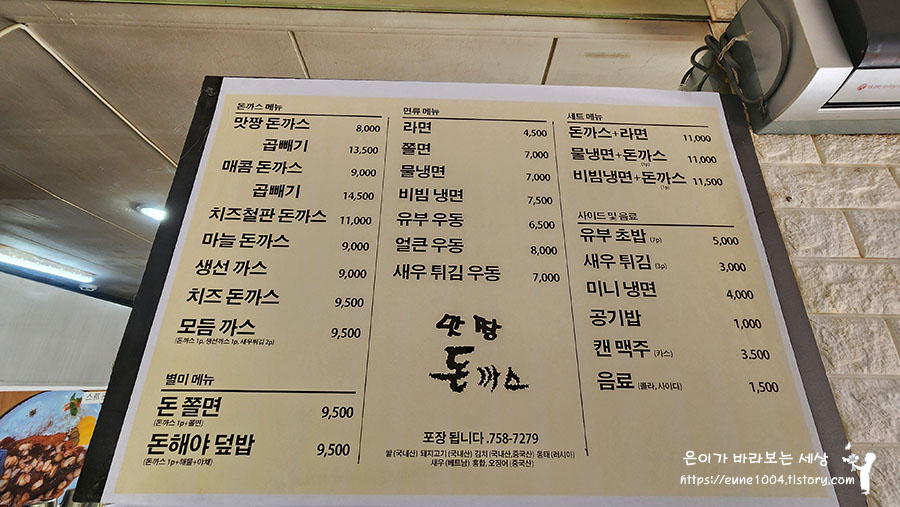 돈까스 메뉴
맛짱 돈까스 8,000
곱빼기 13,500
매콤 돈까스 9,000
곱빼기 14,500
치즈철판 돈까스 11,000
마늘 돈까스 9,000
생선 까스 9,000
치즈 돈까스 9,500
모듬 까스 9,500
(돈까스 1p, 생선까스 1p, 새우튀김 2p)
별미 메뉴
돈 쫄면 9,500
(돈까스 1p+쫄면)
돈해야 덮밥 9,500
(돈까스 1p+해물+야채)
면류 메뉴
라면 4,500
쫄면 7,000
물냉면 7,000
비빔 냉면 7,500
유부 우동 6,500
얼큰 우동 8,000
새우 튀김 우동 7,000
맛짱
돈까스
포장 됩니다 .758-7279
쌀 (국내산) 돼지고기 (국내산) 김치 (국내산,중국산) 동태 (러시아)
새우 (베트남) 홍합, 오징어 (중국산)
세트 메뉴
돈까스+라면 11,000
물냉면+돈까스 11,000
(1p)
비빔냉면+돈까스 11,500
(1p)
사이드 및 음료
유부 초밥 (7p) 5,000
새우 튀김 (3p) 3,000
미니 냉면 4,000
공기밥 1,000
캔 맥주 (카스) 3.500
음료 (콜라, 사이다) 1,500
은이가 바라보는 세상
https://eune1004.tistory.com